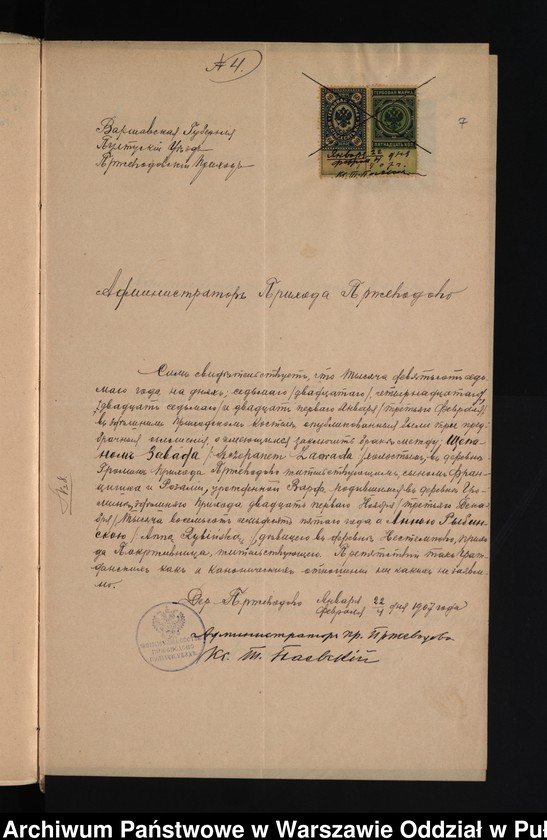 № 4.
7
ГЕРБОВАЯ МАРКА
ПЯТНАДЦАТЬ КОП
Января 22
1907 г.
Кс. Т.
Варшавская Губернія
Пултускій Уѣздъ
Пржеводовскій Приходъ
Администраторъ Прихода Пржеводово
Симъ свидѣтельствуетъ, что тысяча девятьсотъ седь
маго года, на дняхъ: седьмаго /двадцатаго/, четырнадцатаго
/двадцать седьмаго/ и двадцать перваго Января /третьяго Февраля/
въ здѣшнемъ Приходскомъ костелѣ опубликованныя были три пред
брачныя оглашенія, о имеющемся заключить бракъ между: Щепа
номъ Завада /Szczepanem Zawada/ холостымъ, въ деревнѣ
Прихода Пржеводово жительствующимъ, сыномъ Фран
цишка и Розаліи, урожденной родившимся въ деревнѣ
здѣшняго Прихода, двадцать перваго Ноября /третьяго Дека
бря/ тысяча восемьсотъ пятаго года и Анною Рыбин
скою /Anna Rybińska/ дѣвицею въ деревнѣ прихо
да Покрживница, жительствующею. Препятствій какъ Граж
данскихъ такъ и каноническихъ отношеній ни какихъ не заявле
но.
Дер. Пржеводово Января 22
Февраля 4 дня 1907 года
Администраторъ пр. Пржеводово
Кс. Т.
Archiwum Państwowe w Warszawie Oddział w Puł